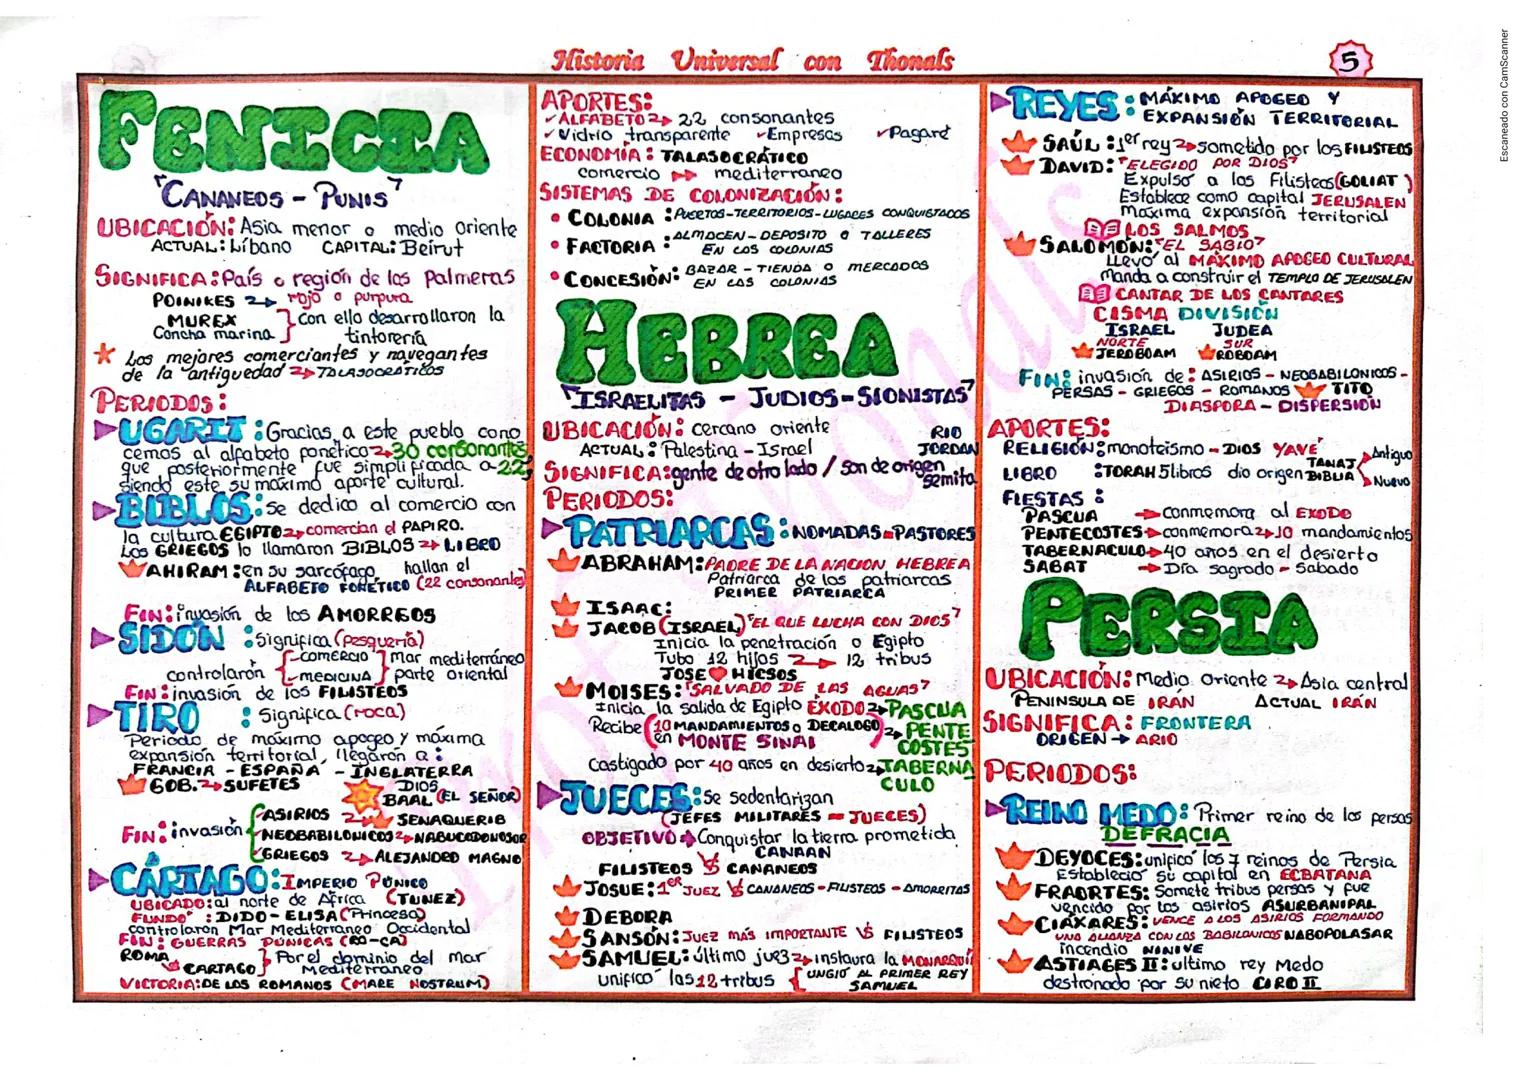 Historia Universal con Thonals
5
Escaneado con CamScanner
FENICIA
"CANANEOS - PUNIS"
UBICACIÓN: Asia menor o medio oriente
ACTUAL: Líbano CAPITAL: Beirut
SIGNIFICA: País o región de las Palmeras
POINIKES → rojo o purpura
MUREX
Concha marina } con ello desarrollaron la
tintorería
* Los mejores comerciantes y navegantes
de la antiguedad → TALASOCRÁTICOS
PERIODOS:
UGARIT: Gracias a este pueblo cono
cemos al alfabeto fonético → 30 consonantes
que posteriormente fue simplificada a 22,
siendo este su máximo aporte cultural.
BIBLOS: Se dedico al comercio con
la cultura EGIPTO → comercian el PAPIRO.
Los GRIEGOS lo llamaron BIBLOS → LIBRO
AHIRAM: En su sarcófago hallan el
ALFABETO FONÉTICO (22 consonantes)
FIN: invasión de los AMORREOS
SIDÓN: Significa (pesquería)
controlarón { COMERCIO } mar mediterráneo
MEDICINA parte oriental
FIN: invasión de los FILISTEOS
TIRO: Significa (roca)
Periodo de máximo apogeo y máxima
expansión territorial, llegarón a:
FRANCIA - ESPAÑA - INGLATERRA
GOB. → SUFETES DIOS
BAAL (EL SEÑOR)
FIN: invasión { ASIRIOS → SENAQUERIB
NEOBABILONICOS → NABUCODONOSOR
GRIEGOS → ALEJANDRO MAGNO
CÁRTAGO: IMPERIO PÚNICO
UBICADO: al norte de África (TUNEZ)
FUNDO: DIDO - ELISA (Princesa)
controlaron Mar Mediterraneo Occidental
FIN: GUERRAS PÚNICAS (RO-CA)
ROMA
VS CARTAGO } Por el dominio del mar
Mediterráneo
VICTORIA: DE LOS ROMANOS (MARE NOSTRUM)
APORTES:
✓ ALFABETO → 22 consonantes
✓ Vidrio transparente ✓ Empresas ✓ Pagaré
ECONOMÍA: TALASOCRÁTICO
comercio → mediterraneo
SISTEMAS DE COLONIZACIÓN:
• COLONIA: PUERTOS-TERRITORIOS-LUGARES CONQUISTADOS
• FACTORIA: ALMACEN - DEPOSITO O TALLERES
EN LAS COLONIAS
• CONCESIÓN: BAZAR - TIENDA O MERCADOS
EN LAS COLONIAS
HEBREA
"ISRAELITAS - JUDIOS - SIONISTAS"
UBICACIÓN: cercano oriente
ACTUAL: Palestina - Israel
RIO
JORDAN
SIGNIFICA: gente de otro lado / son de origen
semita
PERIODOS:
PATRIARCAS: NOMADAS = PASTORES
ABRAHAM: PADRE DE LA NACION HEBREA
Patriarca de los patriarcas
PRIMER PATRIARCA
ISAAC:
JACOB (ISRAEL) "EL QUE LUCHA CON DIOS"
Inicia la penetración a Egipto
Tubo 12 hijos → 12 tribus
JOSE ♥ HICSOS
MOISES: "SALVADO DE LAS AGUAS"
Inicia la salida de Egipto ÉXODO → PASCUA
Recibe (10 MANDAMIENTOS o DECALOGO
en MONTE SINAI) → PENTE
COSTES
Castigado por 40 años en desierto → TABERNA
CULO
JUECES: Se sedentarizan
(JEFES MILITARES = JUECES)
OBJETIVO → Conquistar la tierra prometida
CANAAN
FILISTEOS VS CANANEOS
JOSUE: 1er JUEZ VS CANANEOS - FILISTEOS - AMORREITAS
DEBORA
SANSÓN: JUEZ MÁS IMPORTANTE VS FILISTEOS
SAMUEL: último juez → instaura la MONARQUÍA
unificó las 12 tribus { UNGIÓ AL PRIMER REY
SAMUEL
REYES: MÁXIMO APOGEO Y
EXPANSIÓN TERRITORIAL
SAÚL: 1er rey → sometido por los FILISTEOS
DAVID: "ELEGIDO POR DIOS"
Expulsó a los Filisteos (GOLIAT)
Establece como capital JERUSALEN
Máxima expansión territorial
LOS SALMOS
SALOMÓN: "EL SABIO"
Llevó al MÁXIMO APOGEO CULTURAL
Manda a construir el TEMPLO DE JERUSALEN
CANTAR DE LOS CANTARES
CISMA DIVISIÓN
ISRAEL JUDEA
NORTE SUR
JEROBOAM ROBOAM
FIN: invasión de: ASIRIOS - NEOBABILONICOS -
PERSAS - GRIEGOS - ROMANOS TITO
DIASPORA - DISPERSIÓN
APORTES:
RELIGIÓN: monoteísmo - DIOS YAVÉ
LIBRO: TORAH 5 libros dio origen TANAJ
BIBLIA
Antiguo
Nuevo
FIESTAS:
PASCUA → conmemora al EXODO
PENTECOSTES → conmemora → 10 mandamientos
TABERNACULO → 40 años en el desierto
SABAT → Día sagrado - Sabado
PERSIA
UBICACIÓN: Medio Oriente → Asia central
PENINSULA DE IRÁN ACTUAL IRÁN
SIGNIFICA: FRONTERA
ORIGEN → ARIO
PERIODOS:
REINO MEDO: Primer reino de los persas
DEFRACIA
DEYOCES: unificó los 7 reinos de Persia
Estableció su capital en ECBATANA
FRAORTES: Somete tribus persas y fue
vencido por los asirios ASURBANIPAL
CIÁXARES: VENCE A LOS ASIRIOS FORMANDO
UNA ALIANZA CON LOS BABILONICOS NABOPOLASAR
incendio NINIVE
ASTIAGES II: último rey Medo
destronado por su nieto CIRO II